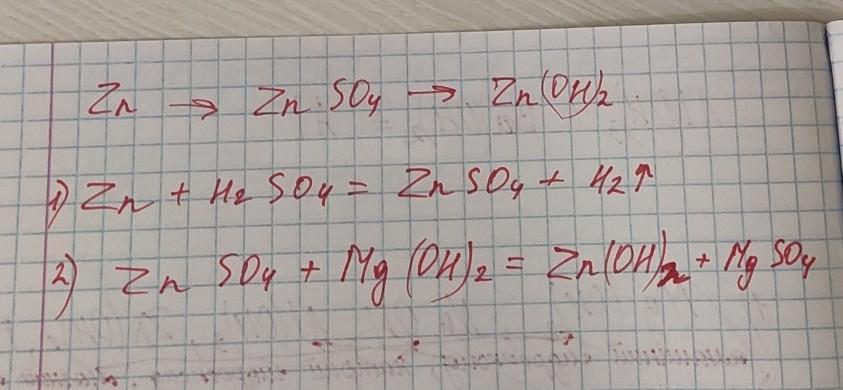 Zn → ZnSO4 → Zn(OH)2
1) Zn + H2SO4 = ZnSO4 + H2↑
2) ZnSO4 + Mg(OH)2 = Zn(OH)2 + MgSO4